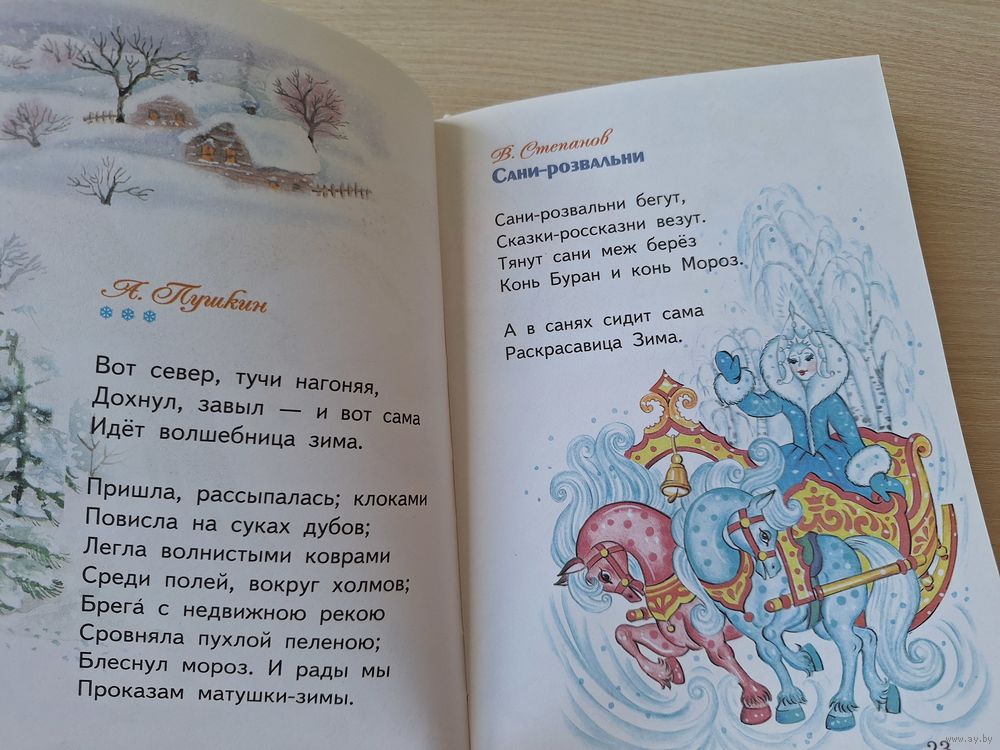 А. Пушкин
Вот север, тучи нагоняя,
Дохнул, завыл — и вот сама
Идёт волшебница зима.
Пришла, рассыпалась; клоками
Повисла на суках дубов;
Легла волнистыми коврами
Среди полей, вокруг холмов;
Брега́ с недвижною рекою
Сровняла пухлой пеленою;
Блеснул мороз. И рады мы
Проказам матушки-зимы.
В. Степанов
Сани-розвальни
Сани-розвальни бегут,
Сказки-россказни везут.
Тянут сани меж берёз
Конь Буран и конь Мороз.
А в санях сидит сама
Раскрасавица Зима.
23
www.ay.by